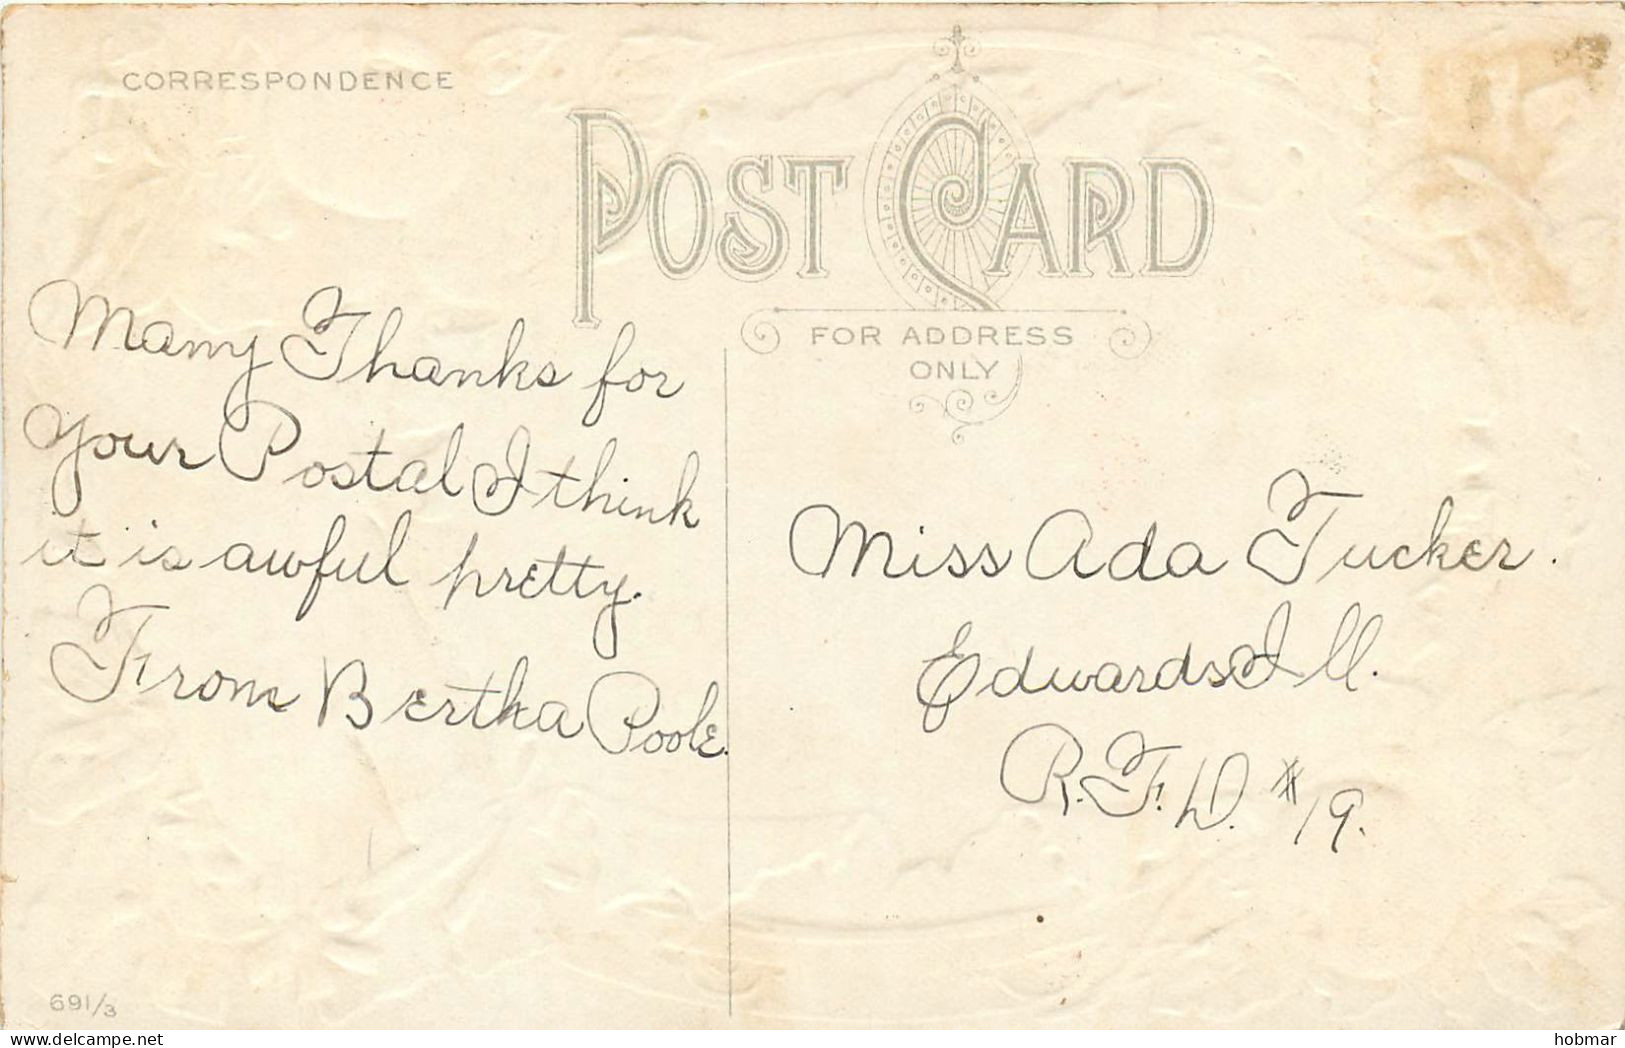 CORRESPONDENCE
POST CARD
FOR ADDRESS
ONLY
Many Thanks for
your Postal I think
it is awful pretty.
From Bertha Poole.
Miss Ada Tucker.
Edwards Ill.
R.F.D. #19.
691/3
delcampe.net
hobmar